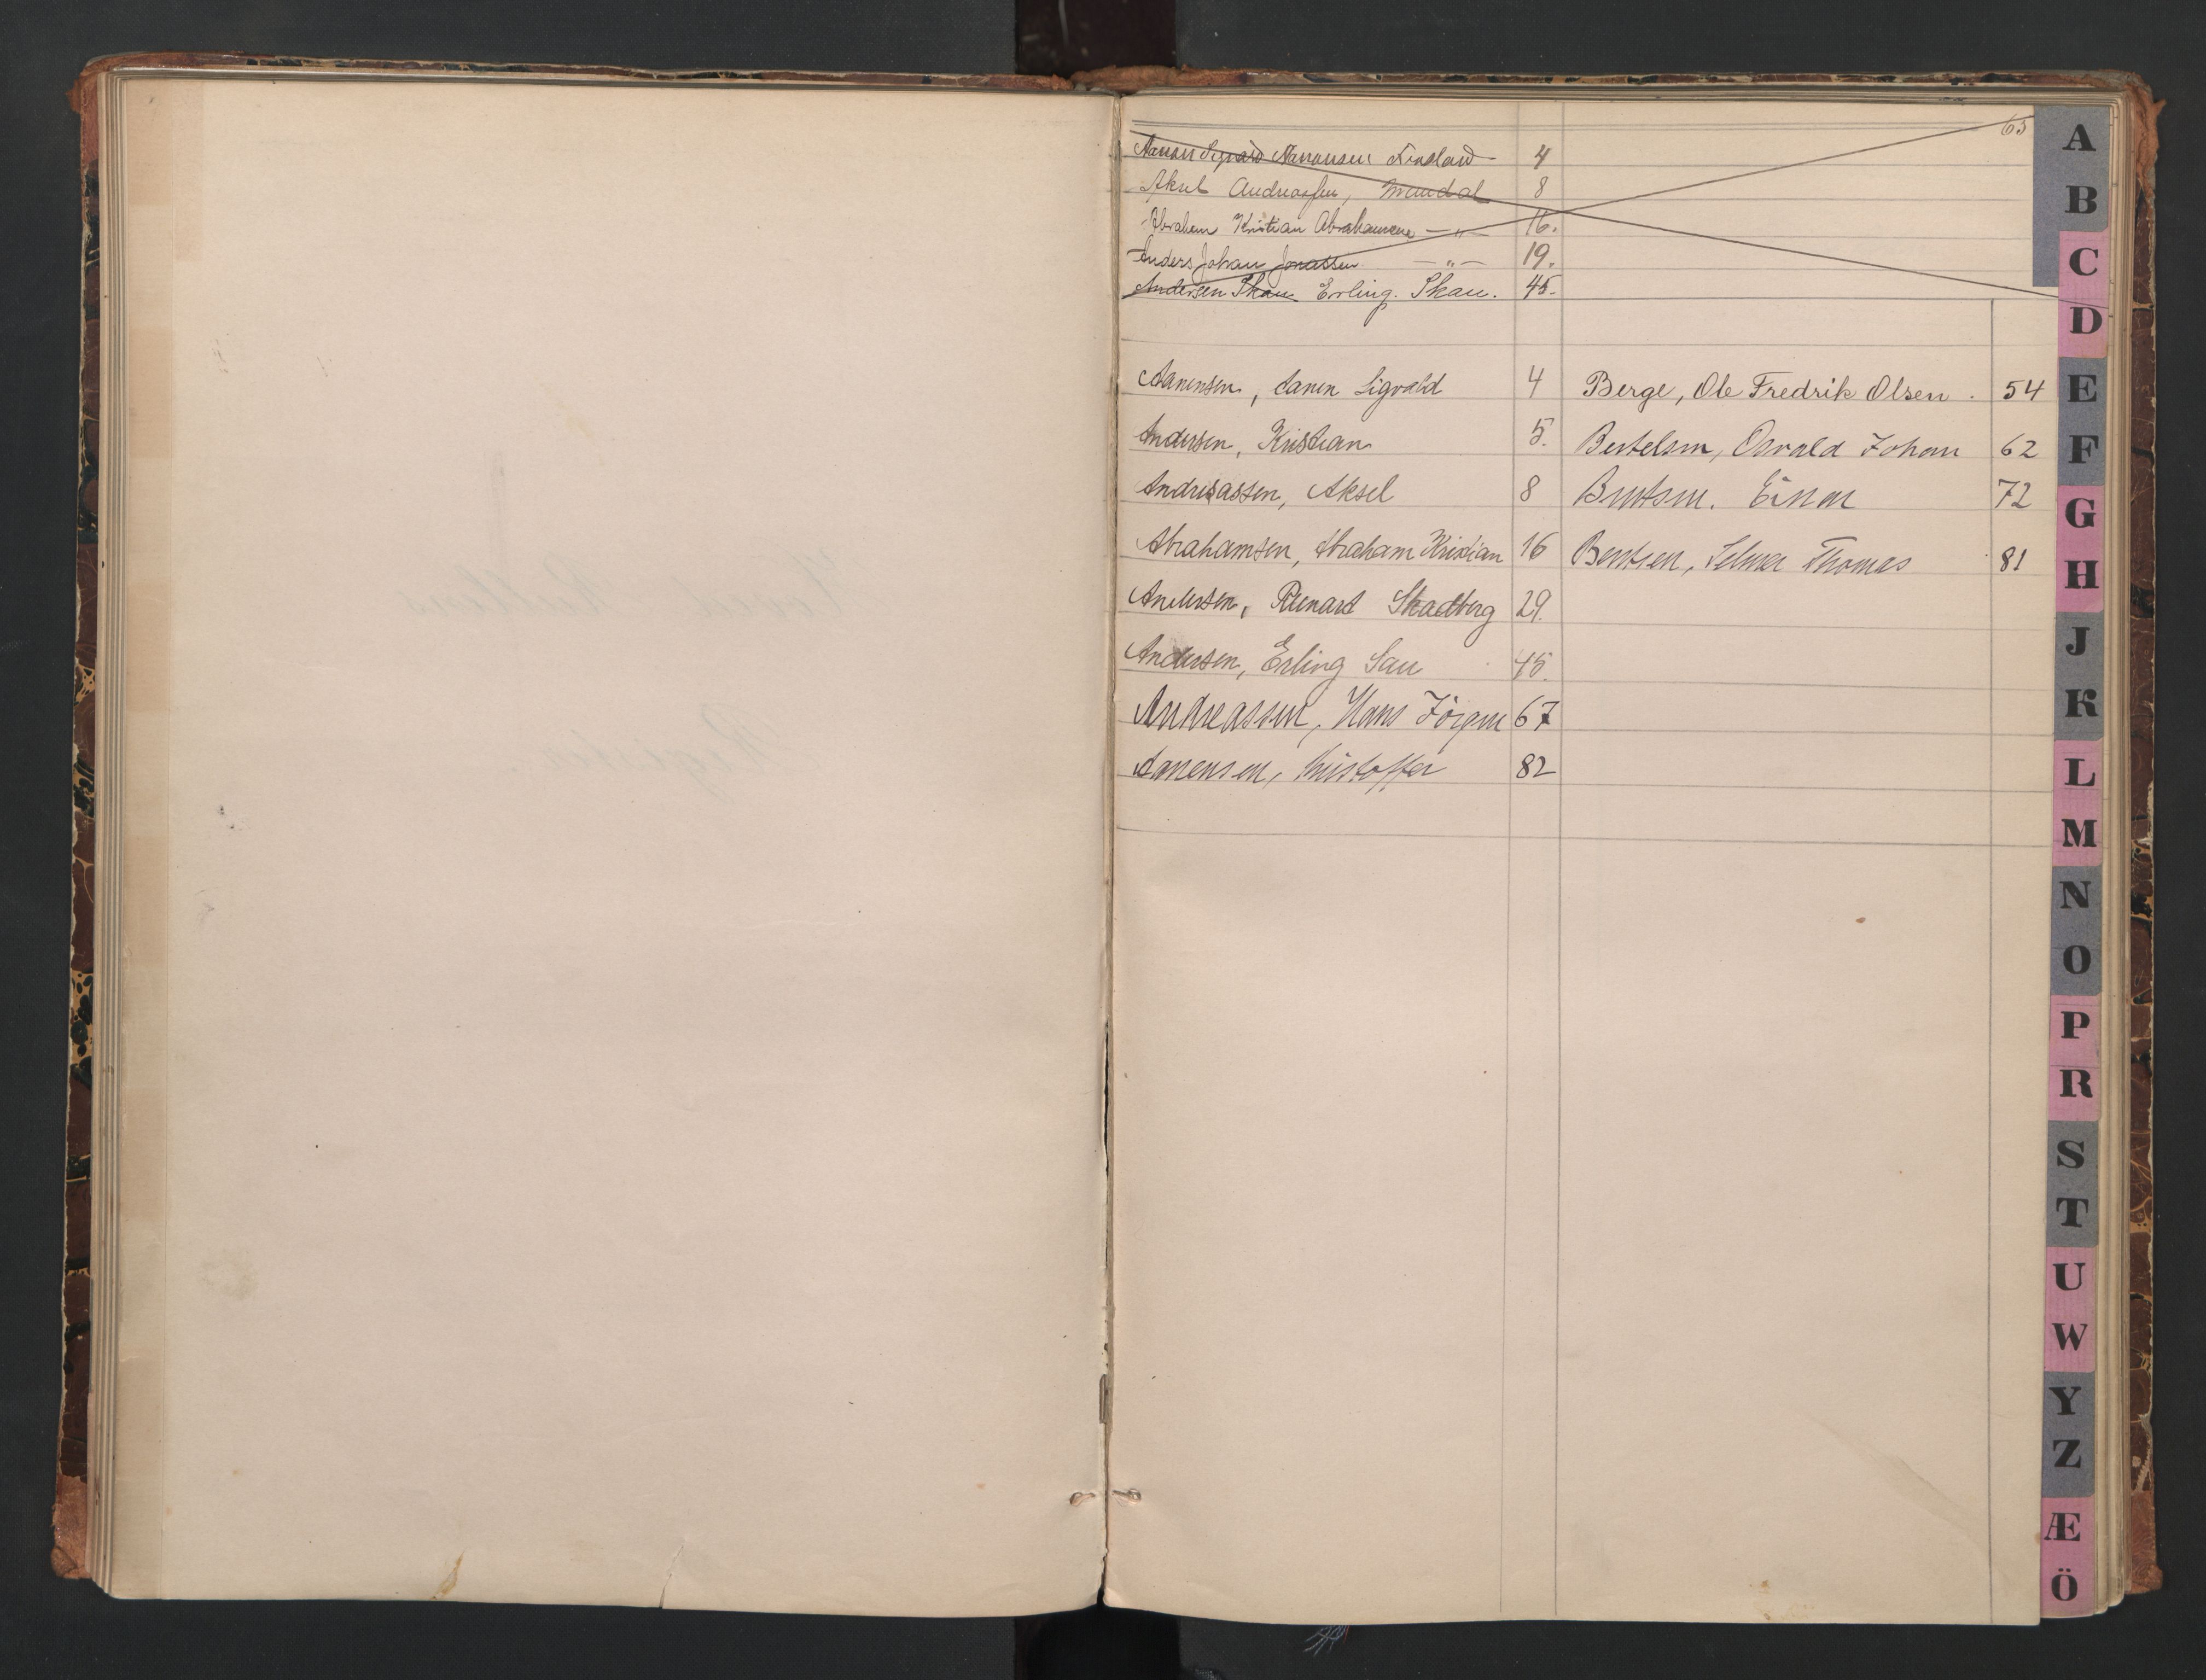 63
Aanen Sigvald Aanensen Finsland 4
Aksel Andreassen, Mandal 8
Abraham Kristian Abrahamsen —"— 16.
Anders Johan Jonassen —"— 19.
Andersen Skau Erling. Skau. 45.
Aanensen, Aanen Sigvald 4
Andersen, Kristian 5.
Andreassen, Aksel 8
Abrahamsen, Abraham Kristian 16
Andersen, Skadberg 29.
Andersen, Erling Sau 45.
Andreassen, Hans Jörgen 67
Aanensen, Kristoffer 82
Berge, Ole Fredrik Olsen . 54
Bertelsen, Osvald Johan 62
Berntsen. Einar 72
Bentsen, Selmer Thomas 81
A
B
C
D
E
F
G
H
J
K
L
M
N
O
P
R
S
T
U
W
Y
Z
Æ
Ö